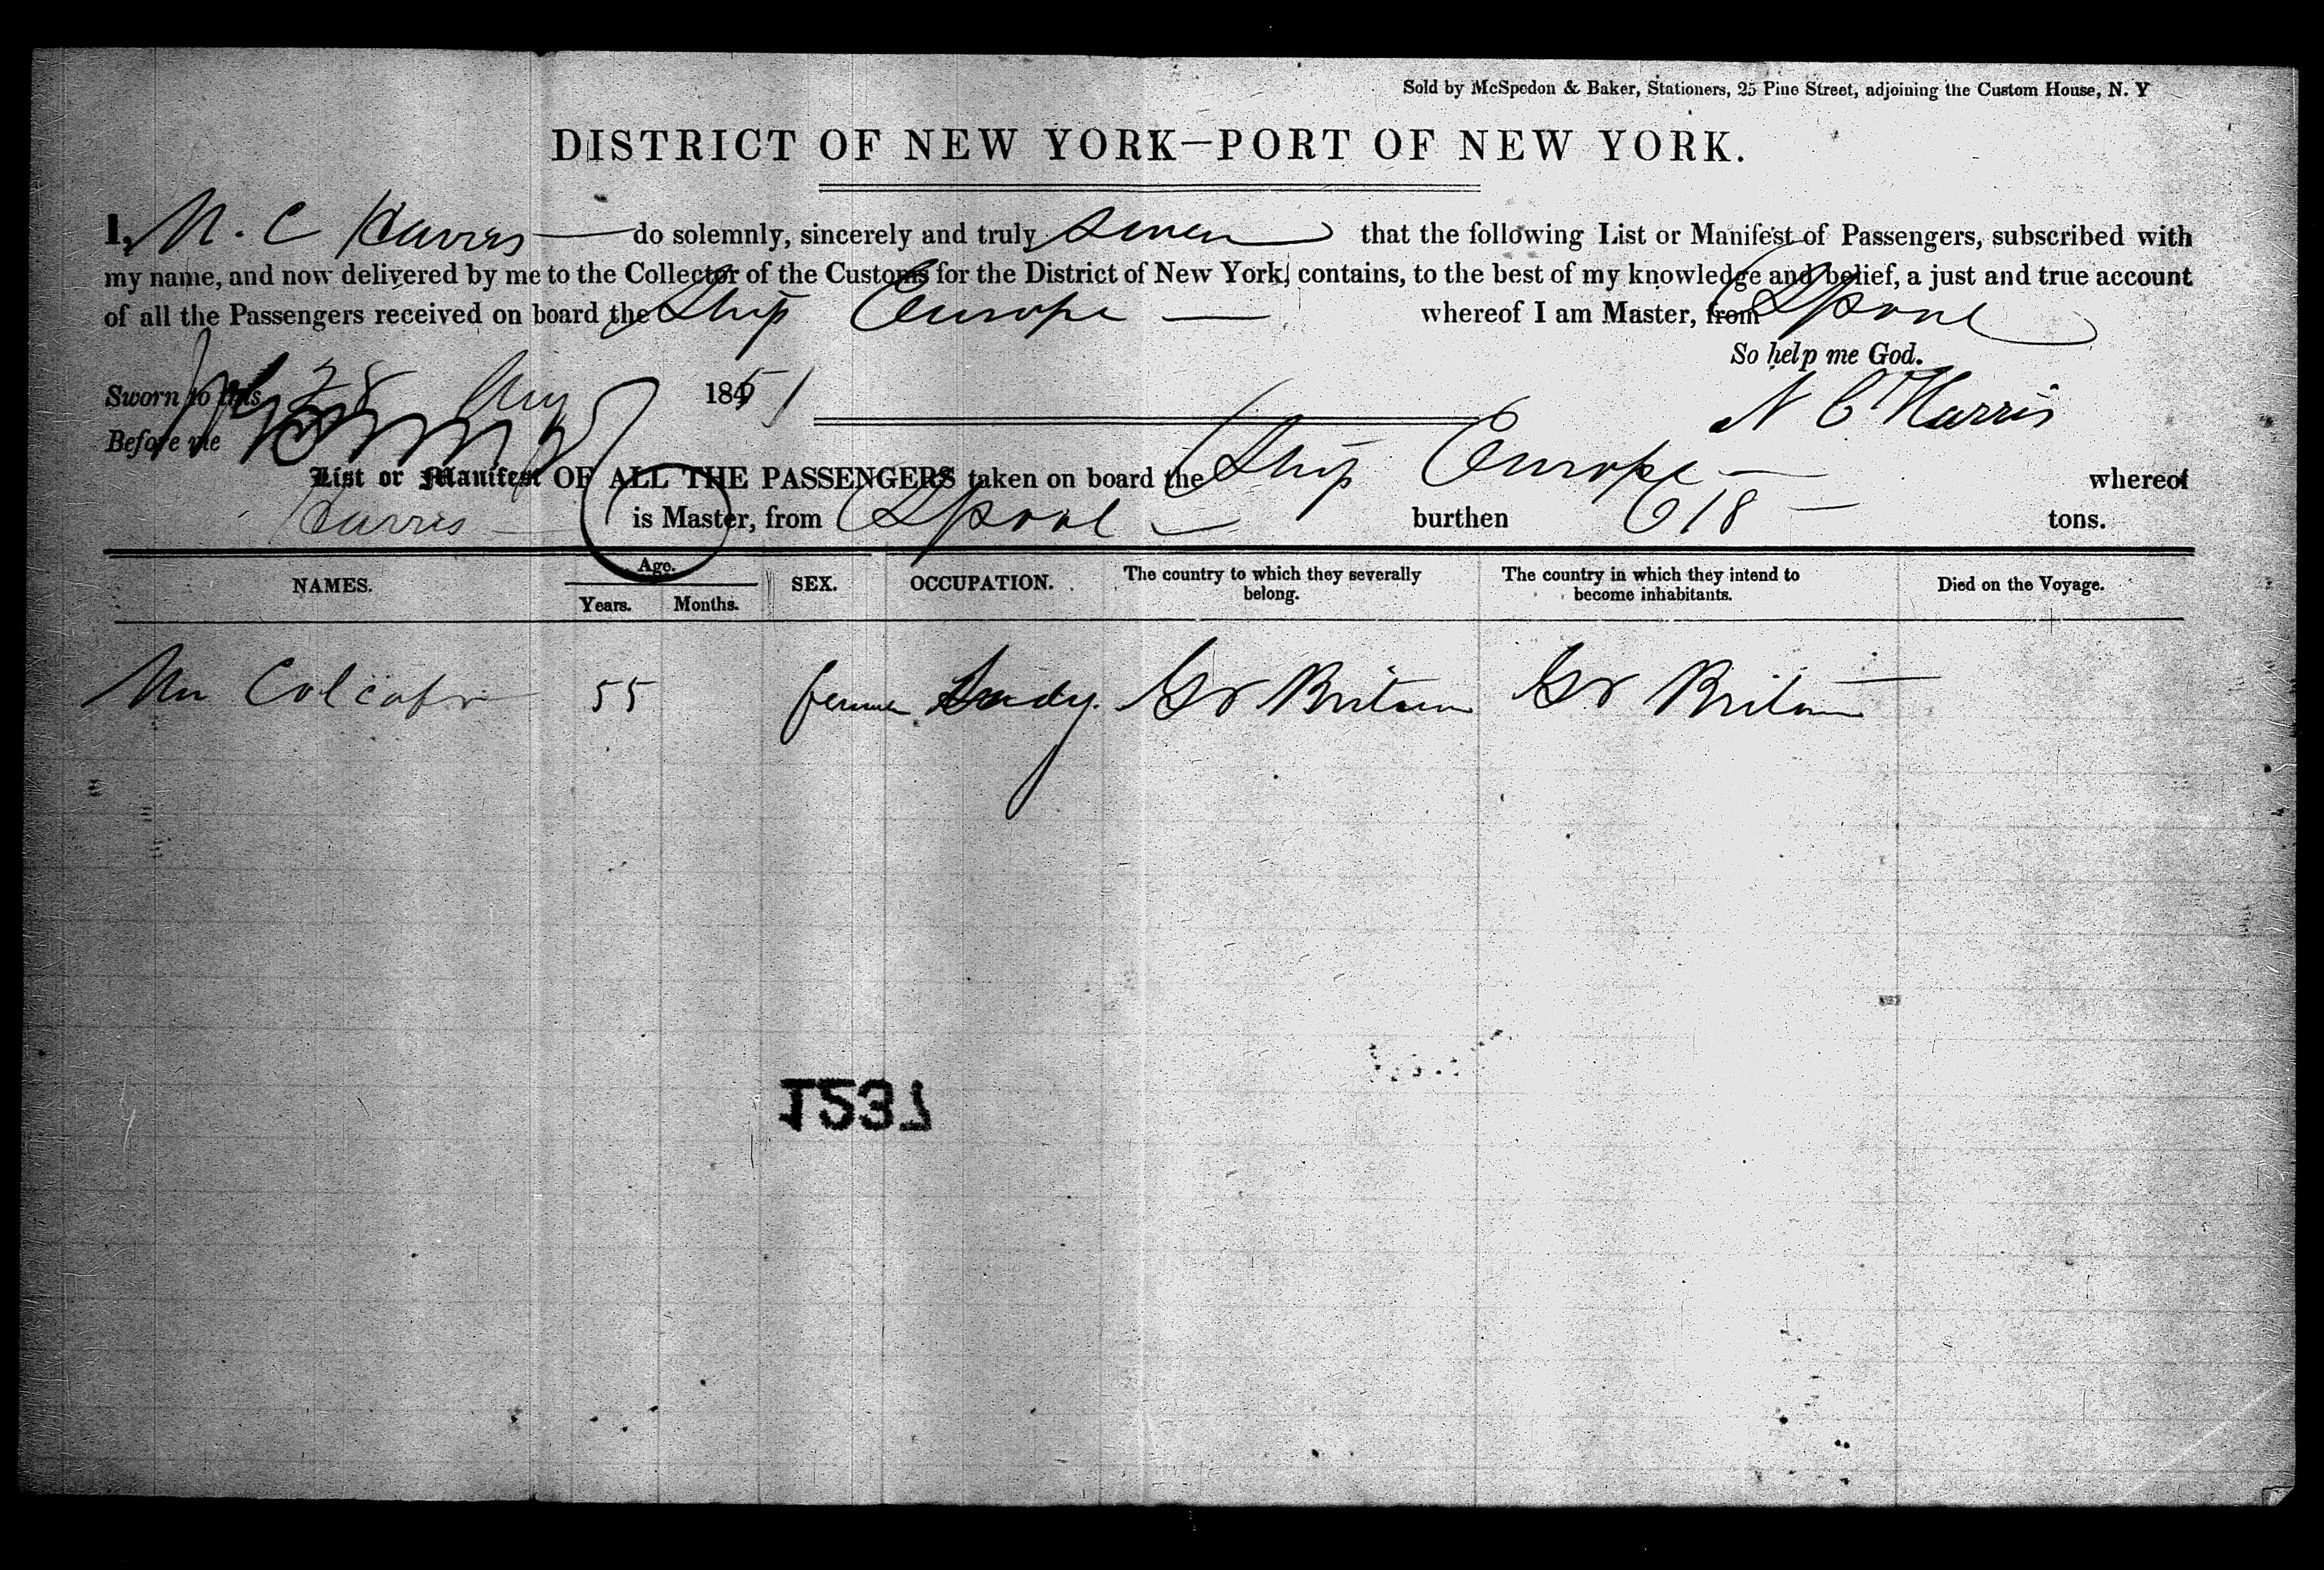 Sold by McSpedon & Baker, Stationers, 25 Pine Street, adjoining the Custom House, N. Y
DISTRICT OF NEW YORK—PORT OF NEW YORK.
I, N. C Harris do solemnly, sincerely and truly swear that the following List or Manifest of Passengers, subscribed with
my name, and now delivered by me to the Collector of the Customs for the District of New York, contains, to the best of my knowledge and belief, a just and true account
of all the Passengers received on board the Ship Europe whereof I am Master, from Lpool
So help me God.
Sworn to this 28 Aug 1851
N C Harris
Before me
List or Manifest OF ALL THE PASSENGERS taken on board the Ship Europe whereof
Harris is Master, from Lpool burthen 618 tons.
NAMES. Age. Years. Months. SEX. OCCUPATION. The country to which they severally belong. The country in which they intend to become inhabitants. Died on the Voyage.
55 Lady. Gr Britain Gr Britain
1537